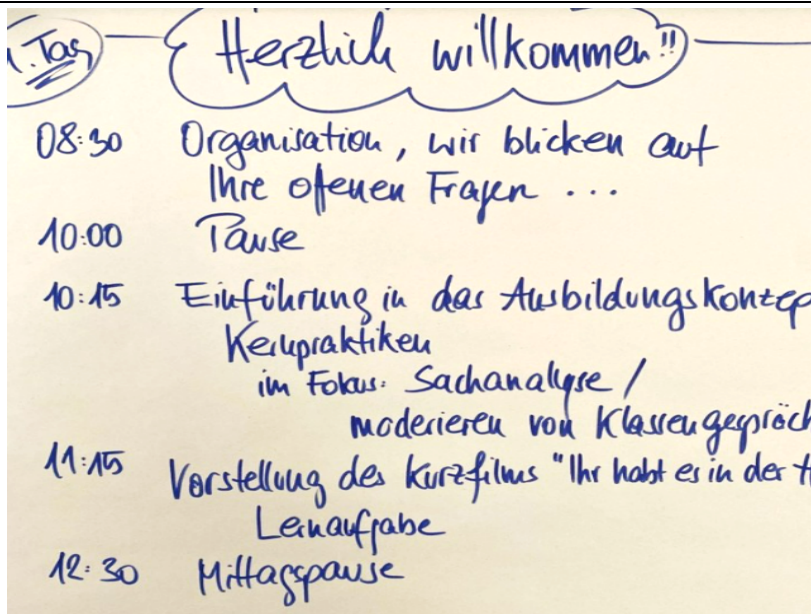 1. Tag
Herzlich willkommen!!
08:30 Organisation, wir blicken auf
Ihre offenen Fragen ...
10:00 Pause
10:15 Einführung in das Ausbildungskonzep
Kernpraktiken
im Fokus: Sachanalyse /
moderieren von Klassengespräch
11:15 Vorstellung des Kurzfilms "Ihr habt es in der H
Lernaufgabe
12:30 Mittagspause